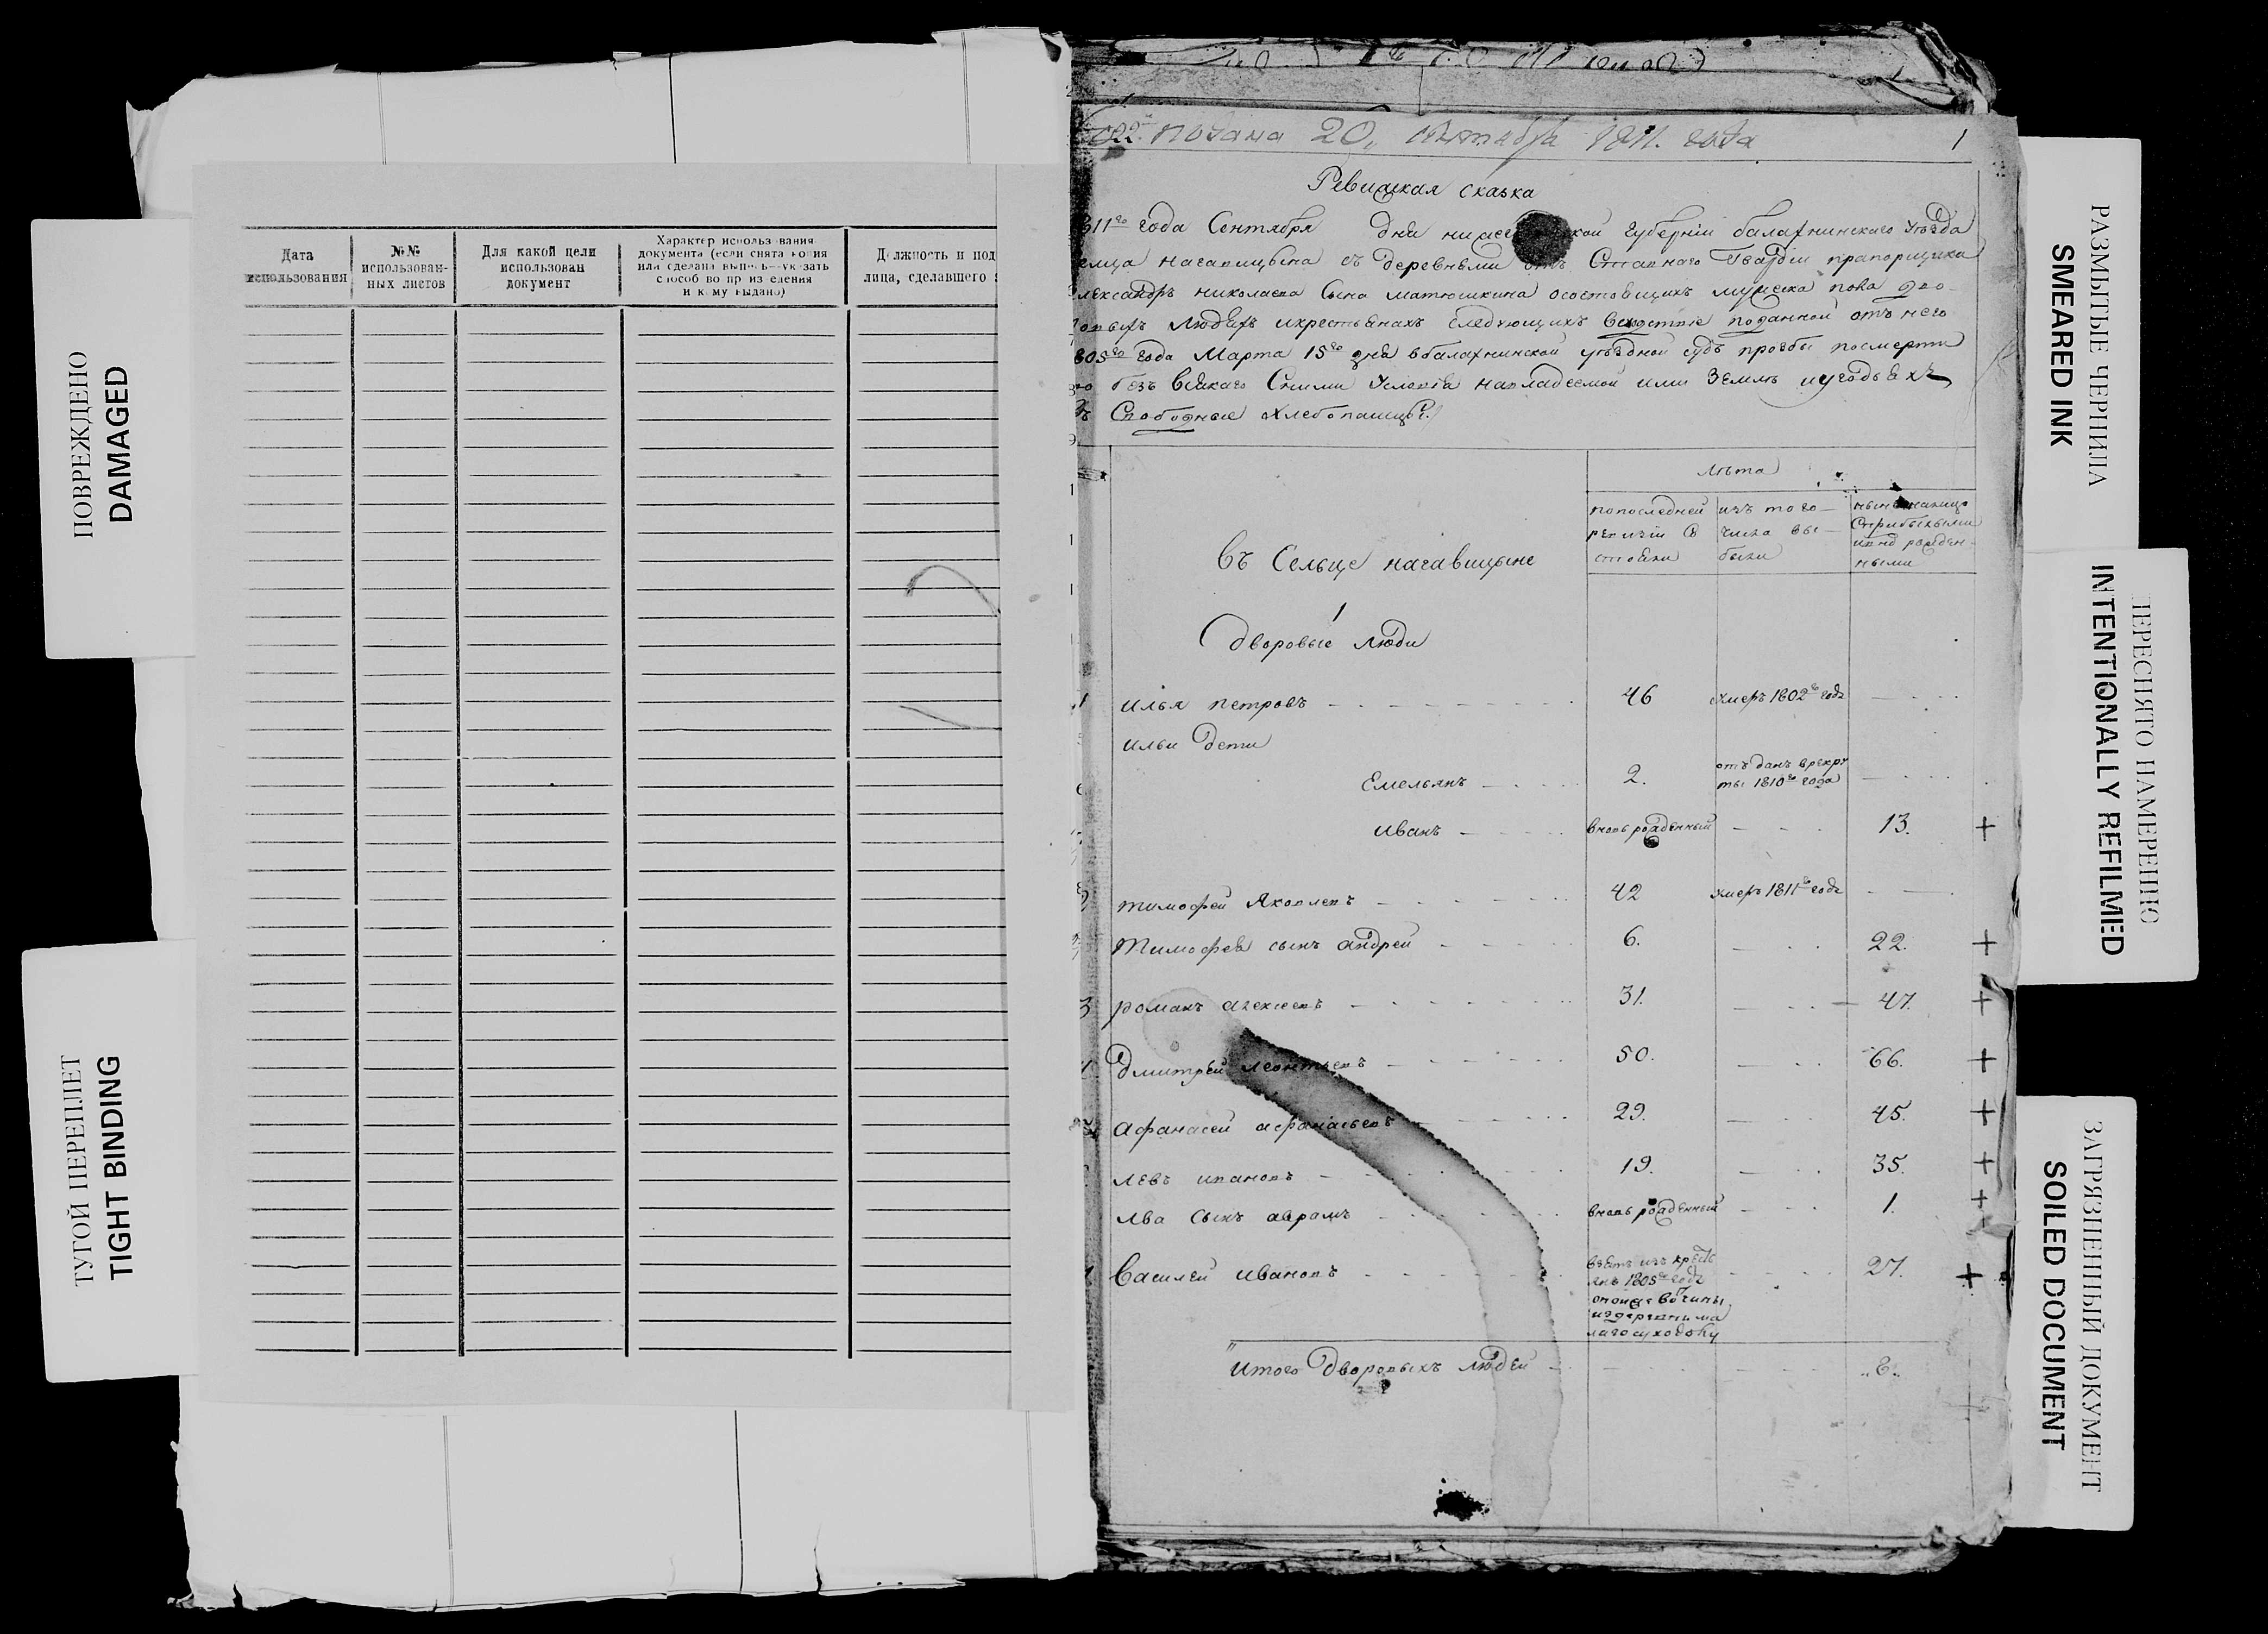 ПОВРЕЖДЕНО
DAMAGED
ТУГОЙ ПЕРЕПЛЕТ
TIGHT BINDING
Дата использования
№№ использован-ных листов
Для какой цели использован документ
Характер использования документа (если снята копия или сделана выпись—указать способ воспроизведения и кому выдано)
Должность и под
лица, сделавшего
подана 20, октября 1811. года
1
Ревизская сказка
811го года Сентября дня губернии балахнинского уезда
нагавицына съ деревнями отъ гвардии прапорщика
николаева сына матюшкина осостовщихъ мужеска пола дво-
людехъ икрестьянахъ следующихъ поданной отъ него
805го года Марта 15го дня вбалахнинской уездной судъ прозбы посмерти
безъ всякаго сними условия ими земле иугодьяхъ
Свободные хлебопашцы.
Лета
попоследней ревизии состояли
изъ того числа выбыли
ныне налицо
Въ Сельце нагавицыне
1
Дворовые люди
1 илья петровъ 46 умеръ 1802го годе
ильи дети
Емельянъ 2. отъданъ врекруты 1810го года
иванъ вновь рожденный 13. +
тимофей Яковлевъ 42 умеръ 1811го годе
Тимофея сынъ андрей 6. 22. +
3 романъ алексеевъ 31. 47. +
Дмитрей леонтьевъ 50. 66. +
афанасей афанасьевъ 29. 45. +
левъ ивановъ 19. 35. +
лва сынъ аврамъ вновь рожденный 1. +
Василей ивановъ 27. +
взятъ изъ крестьянъ 1805го годе
итого Дворовыхъ людей
РАЗМЫТЫЕ ЧЕРНИЛА
SMEARED INK
ПЕРЕСНЯТО НАМЕРЕННО
INTENTIONALLY REFILMED
ЗАГРЯЗНЕННЫЙ ДОКУМЕНТ
SOILED DOCUMENT